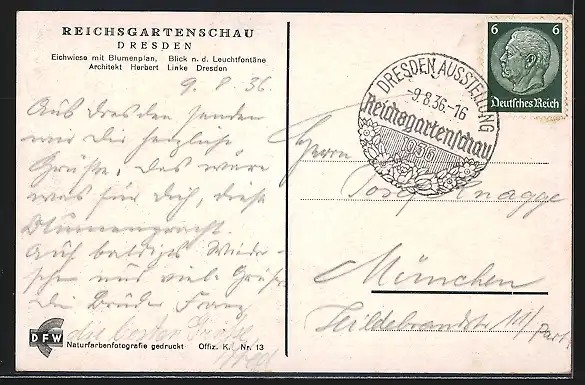 REICHSGARTENSCHAU
DRESDEN
Eichwiese mit Blumenplan, Blick n. d. Leuchtfontäne
Architekt Herbert Linke Dresden
9. 8. 36.
Aus Dresden senden
wir Dir herzliche
Grüße, das wäre
was für Dich, diese
Blumenpracht.
Auf baldiges Wieder-
sehen und viele Grüße
Die Brüder Franz
die besten Grüße
DFW
Naturfarbenfotografie gedruckt Offiz. K. Nr. 13
DRESDEN AUSSTELLUNG
-9.8.36.-16
Reichsgartenschau
1936
6 6
Deutsches Reich
Herrn
Josef Knagge
München
Hildebrandstr 11/